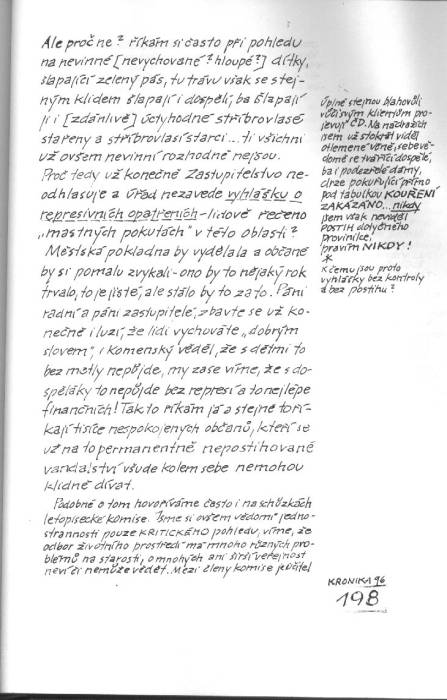 Ale proč ne? říkám si často při pohledu
na nevinné [nevychované? hloupé?] dítky,
šlapající zelený pás, tu trávu však se stej-
ným klidem šlapají i dospělí, ba šlapají
ji i [zdánlivě] úctyhodné stříbrovlasé
stařeny a stříbrovlasí starci... ti všichni
už ovšem nevinní rozhodně nejsou.
Proč tedy už konečně Zastupitelstvo ne-
odhlasuje a Úřad nezavede vyhlášku o
represivních opatřeních - lidově řečeno
„mastných pokutách" v této oblasti?
Městská pokladna by vydělala a občané
by si pomalu zvykali - ono by to nějaký rok
trvalo, to je jisté, ale stálo by to za to. Páni
radní a páni zastupitelé, zbavte se už ko-
nečně iluzí, že lidi vychováte „dobrým
slovem", i Komenský věděl, že s dětmi to
bez metly nepůjde, my zase víme, že s do-
spěláky to nepůjde bez represí a to nejlépe
finančních! Tak to říkám já a stejně to ří-
kají tisíce nespokojených občanů, kteří se
už na to permanentně nepostihované
vandalství všude kolem sebe nemohou
klidně dívat.
Podobně o tom hovoříváme často i na schůzkách
letopisecké komise. Jsme si ovšem vědomi jedno-
strannosti pouze KRITICKÉHO pohledu, víme, že
odbor životního prostředí má mnoho různých pro-
blémů na starosti, o mnohých ani širší veřejnost
neví či nemůže vědět. Mezi členy komise je učitel
Úplně stejnou blahovůli
vůči svým klientům pro-
jevují ČD. Na nádražích
jsem už stokrát viděl
otlemené učně, sebevě-
domě se tvářící dospělé,
ba i podezřelé dámy,
drze pokuřující přímo
pod tabulkou KOUŘENÍ
ZAKÁZÁNO... nikdy
jsem však neviděl
postih dotyčného
provinilce,
pravím NIKDY!
*
K čemu jsou proto
vyhlášky bez kontroly
a bez postihu?
KRONIKA 96
198